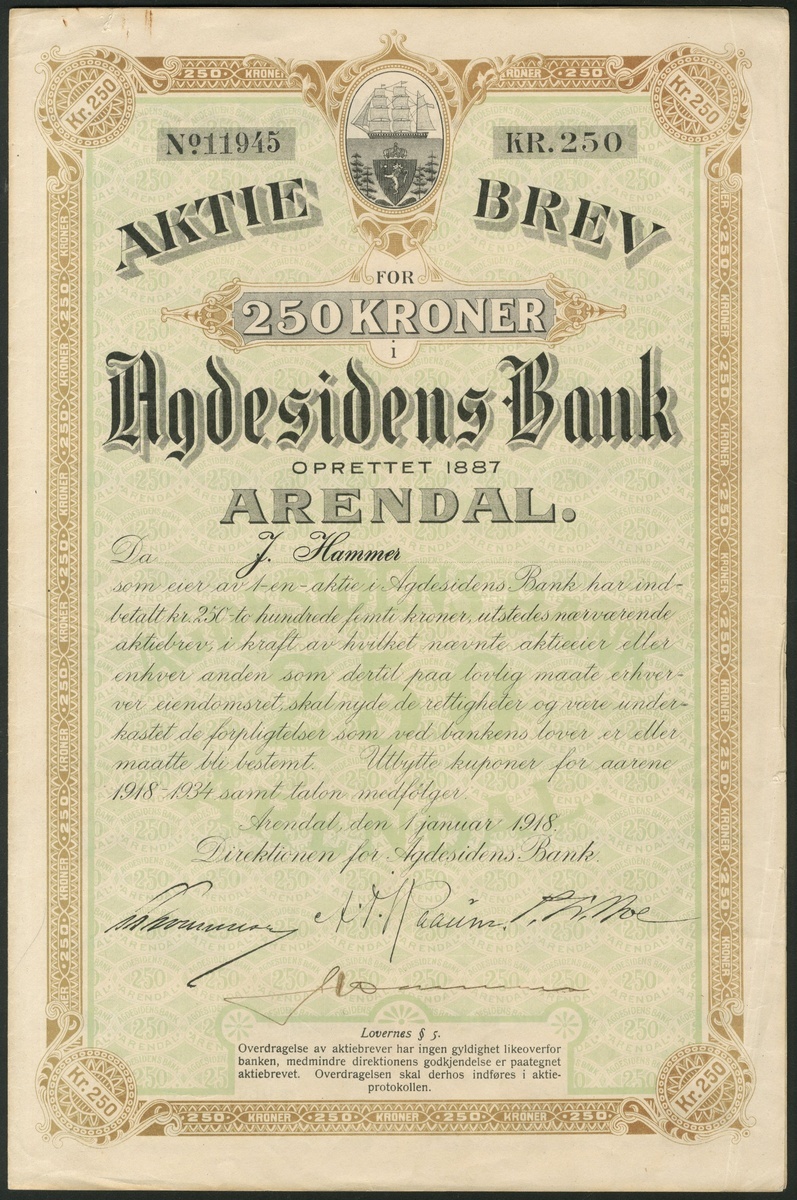 250 KRONER
KRONER 250
Kr. 250
Kr. 250
No 11945
KR. 250
AKTIE BREV
FOR
250 KRONER
i
Agdesidens Bank
OPRETTET 1887
ARENDAL.
Da J. Hammer
som eier av 1-en-aktie i Agdesidens Bank har ind-
betalt kr. 250-to hundrede femti kroner, utstedes nærværende
aktiebrev, i kraft av hvilket nævnte aktieeier eller
enhver anden som dertil paa lovlig maate erhver-
ver eiendomsret, skal nyde de rettigheter og være under-
kastet de forpligtelser som ved bankens lover er eller
maatte bli bestemt. Utbytte kuponer for aarene
1918-1934 samt talon medfölger.
Arendal, den 1 januar 1918.
Direktionen for Agdesidens Bank.
Lovernes § 5.
Overdragelse av aktiebrever har ingen gyldighet likeoverfor
banken, medmindre direktionens godkjendelse er paategnet
aktiebrevet. Overdragelsen skal derhos indføres i aktie-
protokollen.
Kr. 250
Kr. 250
250 KRONER 250 KRONER 250 KRONER 250